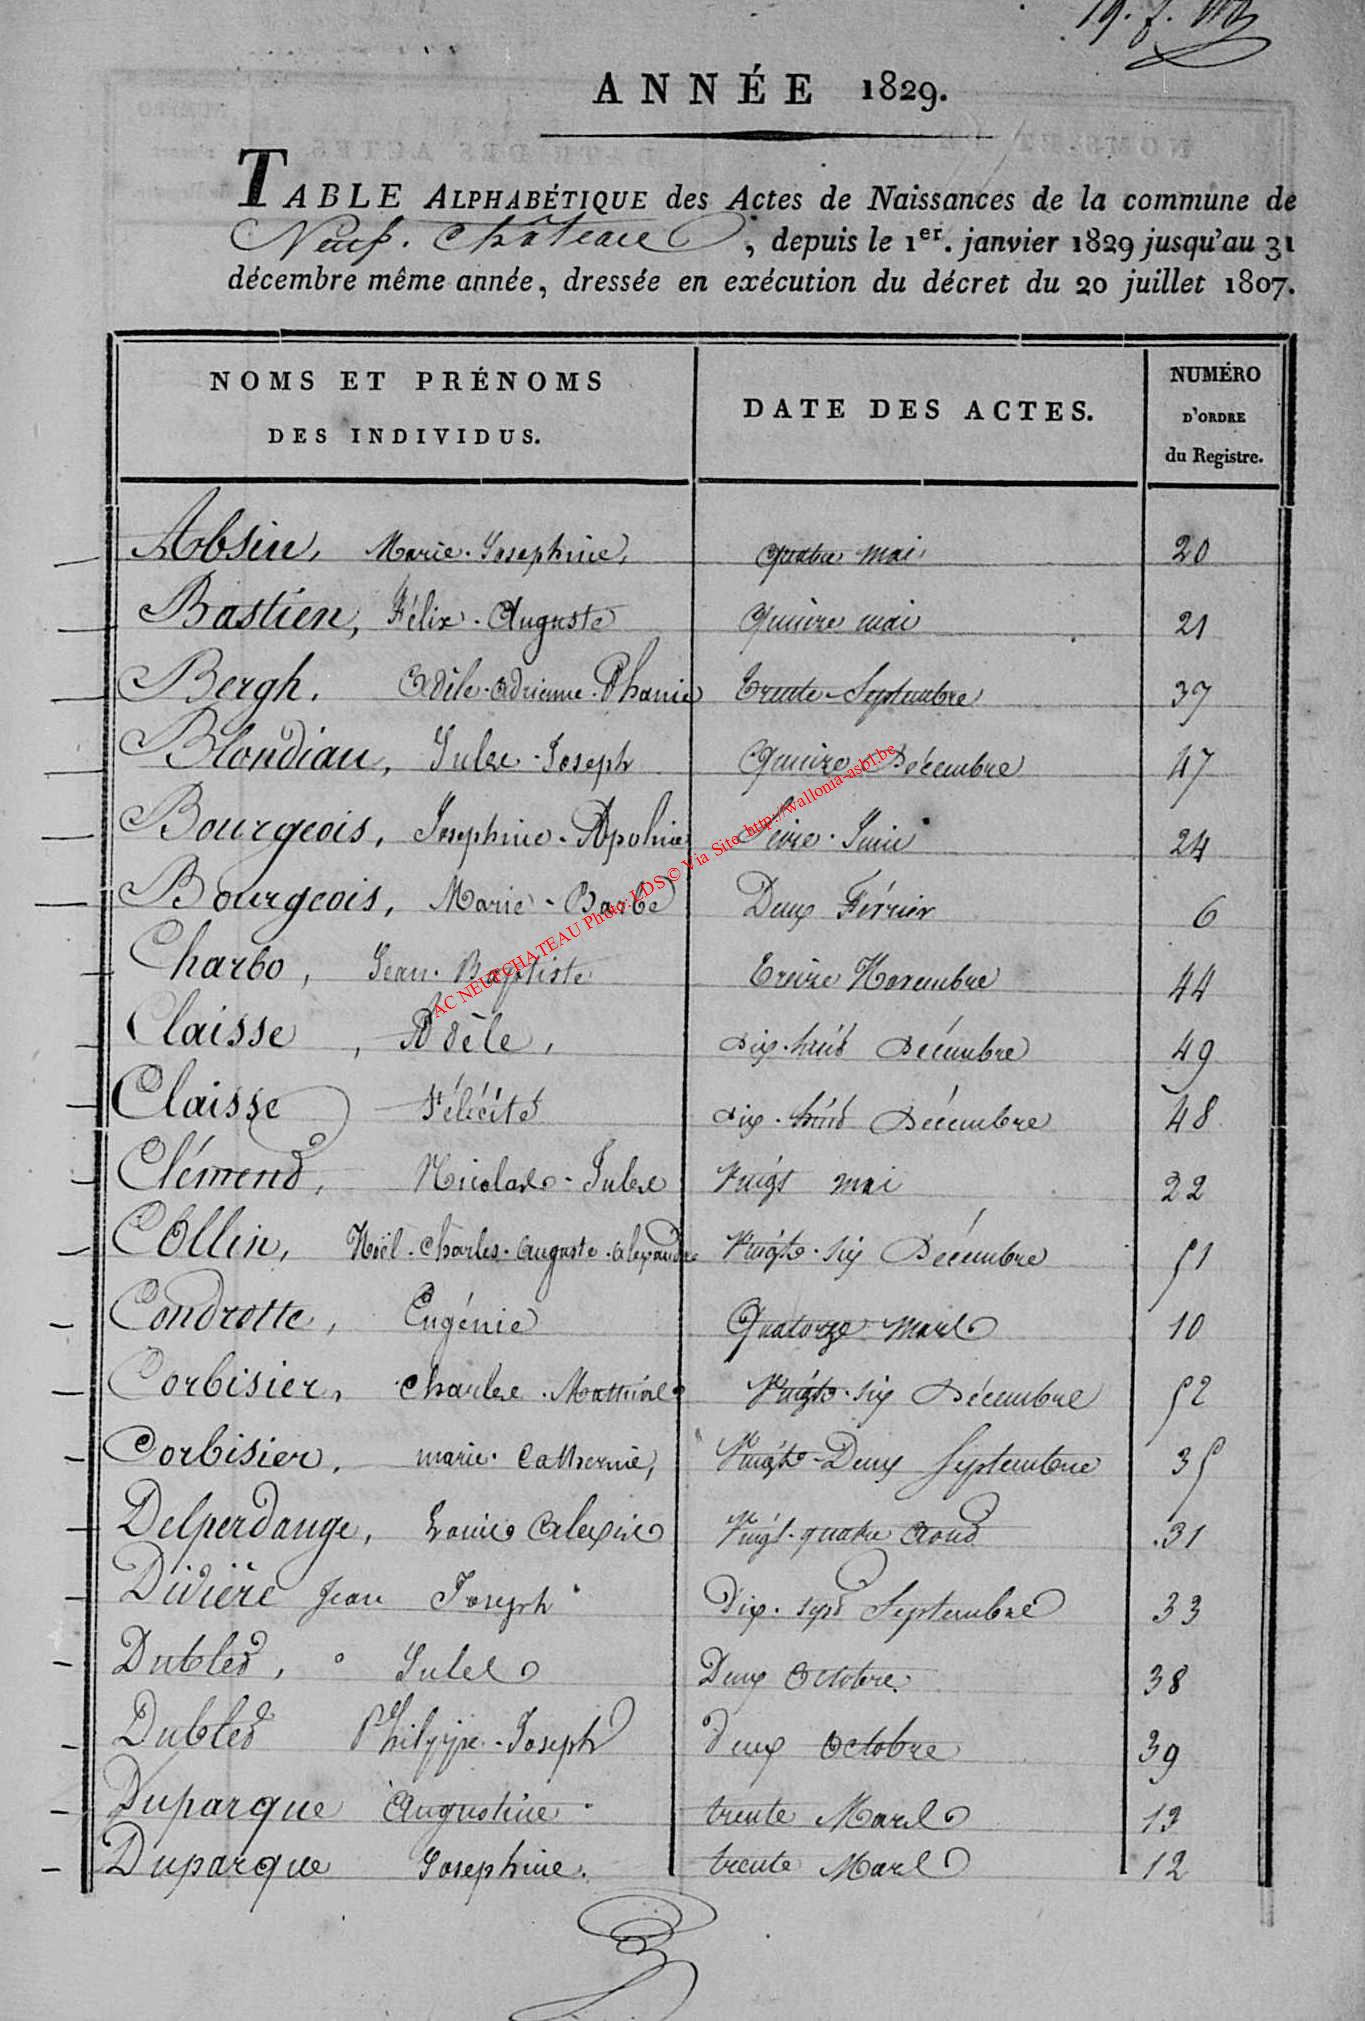 19. f.
ANNÉE 1829.
TABLE ALPHABÉTIQUE des Actes de Naissances de la commune de
Neuf-Château, depuis le 1er. janvier 1829 jusqu'au 31
décembre même année, dressée en exécution du décret du 20 juillet 1807.
NOMS ET PRÉNOMS DES INDIVIDUS. DATE DES ACTES. NUMÉRO D'ORDRE du Registre.
Absin, Marie-Josephine, quatre mai 20
Bastien, Félix-Auguste Quinze mai 21
Bergh, Adèle-Adrienne-Phanie Trente Septembre 37
Blondiau, Jules-Joseph Quinze Décembre 47
Bourgeois, Josephine-Apoline Seize Juin 24
Bourgeois, Marie-Barbe Deux Février 6
Charbo, Jean-Baptiste Treize Novembre 44
Claisse, Adèle, dix-huit Décembre 49
Claisse Félécité dix-huit Décembre 48
Clément, Nicolas-Jules Vingt mai 22
Collin, Noël-Charles-Auguste-Alexandre Vingt-six Décembre 51
Condrotte, Eugénie Quatorze Mars 10
Corbisier, Charles Vingt-six Décembre 52
Corbisier, marie-Catherine, Vingt-Deux Septembre 35
Delperdange, Louise Alexise Vingt-quatre Aout 31
Didière Jean Joseph Dix-sept Septembre 33
Dubled, Jules Deux Octobre 38
Dubled Philippe-Joseph deux Octobre 39
Duparque Augustine trente Mars 13
Duparque Josephine. trente Mars 12
AC NEUFCHATEAU Photo LDS © Via Site http://wallonia-asbl.be